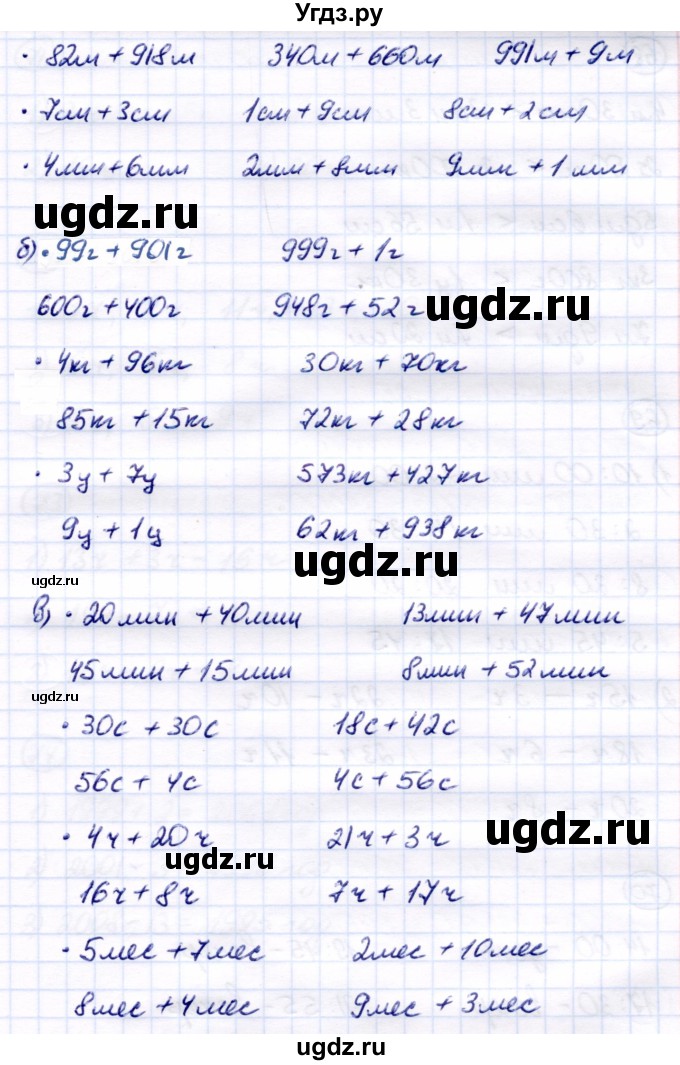 Угдз.ру
· 82м + 918м 340м + 660м 991м + 9м
· 7см + 3см 1см + 9см 8см + 2см
· 4мм + 6мм 2мм + 8мм 9мм + 1мм
ugdz.ru
б) · 99г + 901г 999г + 1г
600г + 400г 948г + 52г
ugdz.ru
· 4кг + 96кг 30кг + 70кг
85кг + 15кг 72кг + 28кг
· 3ц + 7ц 573кг + 427кг
9ц + 1ц 62кг + 938кг
ugdz.ru
ugdz.ru
в) · 20мин + 40мин 13мин + 47мин
45мин + 15мин 8мин + 52мин
ugdz.ru
· 30с + 30с 18с + 42с
56с + 4с 4с + 56с
· 4ч + 20ч 21ч + 3ч
ugdz.ru
ugdz.ru
16ч + 8ч 7ч + 17ч
· 5мес + 7мес 2мес + 10мес
8мес + 4мес 9мес + 3мес
ugdz.ru